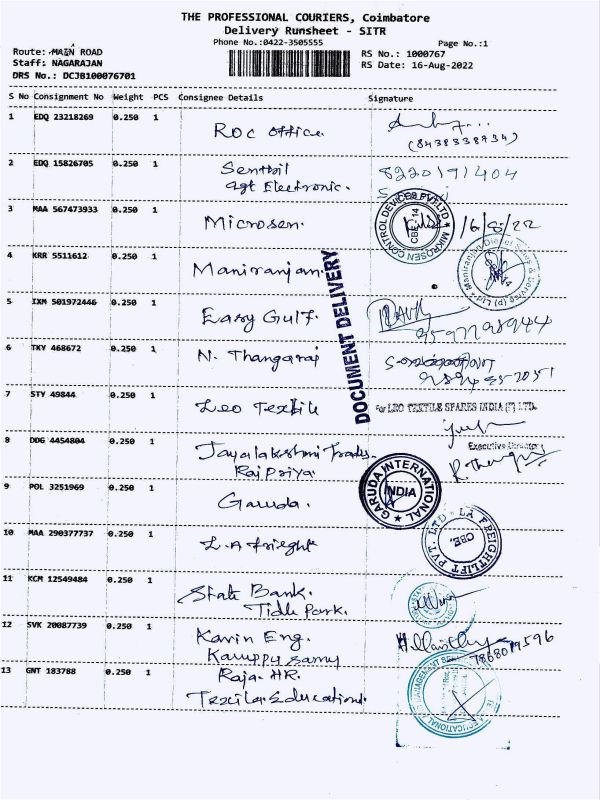 THE PROFESSIONAL COURIERS, Coimbatore
Delivery Runsheet - SITR
Phone No.:0422-3505555 Page No.:1
Route: MAIN ROAD RS No.: 1000767
Staff: NAGARAJAN RS Date: 16-Aug-2022
DRS No.: DCJB100076701
S No Consignment No Weight PCS Consignee Details Signature
1 EDQ 23218269 0.250 1 ROC office.
(8438338734)
2 EDQ 15826705 0.250 1 Senthil 8220191404
Agt Electronic.
3 MAA 567473933 0.250 1 Microsen. MIKROSEN CONTROL DEVICES PVT LTD CBE-14 16/8/22
4 KRR 5511612 0.250 1 Maniranjan.
5 IXM 501972446 0.250 1 Easy Gulf.
DOCUMENT DELIVERY
6 TKY 468672 0.250 1 N. Thangaraj
7 STY 49844 0.250 1 Leo Textile For LEO TEXTILE SPARES INDIA (P) LTD.
Executive Director
8 DDG 4454804 0.250 1 Jayalakshmi Trades.
Rajpriya
9 POL 3251969 0.250 1 Garuda. GARUDA INTERNATIONAL INDIA
10 MAA 290377737 0.250 1 L.A freight LA FREIGHTLIFT PVT. LTD CBE.
11 KCM 12549484 0.250 1 State Bank.
Tidle Park.
12 SVK 20087739 0.250 1 Kavin Eng.
Karuppusamy 7868079596
13 GNT 183788 0.250 1 Raja. HR.
Texcila Educational.